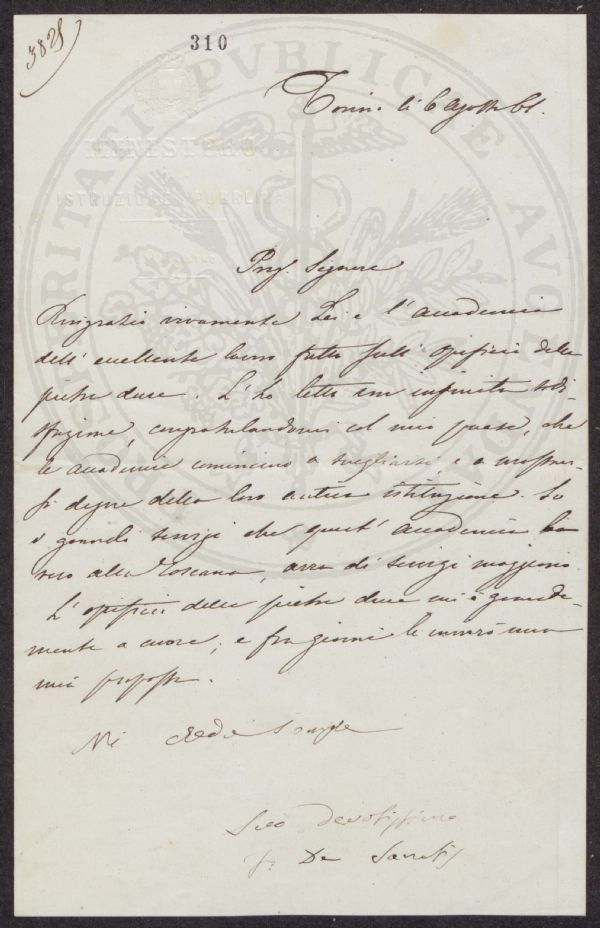 3828
310
Torino li 6 Agosto 61.
MINISTERO
ISTRUZIONE PUBBLICA
PROSPERITATI PVBLICAE AVGENDAE
Preg. Signore
Ringrazio vivamente Lei e l'accademia
dell'eccellente lavoro fatto sull'opificio delle
pietre dure. L'ho letto con infinita sodi-
sfazione, congratulandomi col mio paese, che
le accademie comincino a svegliarsi, e a mostrar-
si degne della loro antica istituzione. So
i grandi servigi che quest'accademia ha
reso alla Toscana, arra di servigi maggiori.
L'opificio delle pietre dure mi è grande-
mente a cuore, e fra giorni le invierò una
mia proposta.
Mi creda sempre
Suo devotissimo
F. De Sanctis